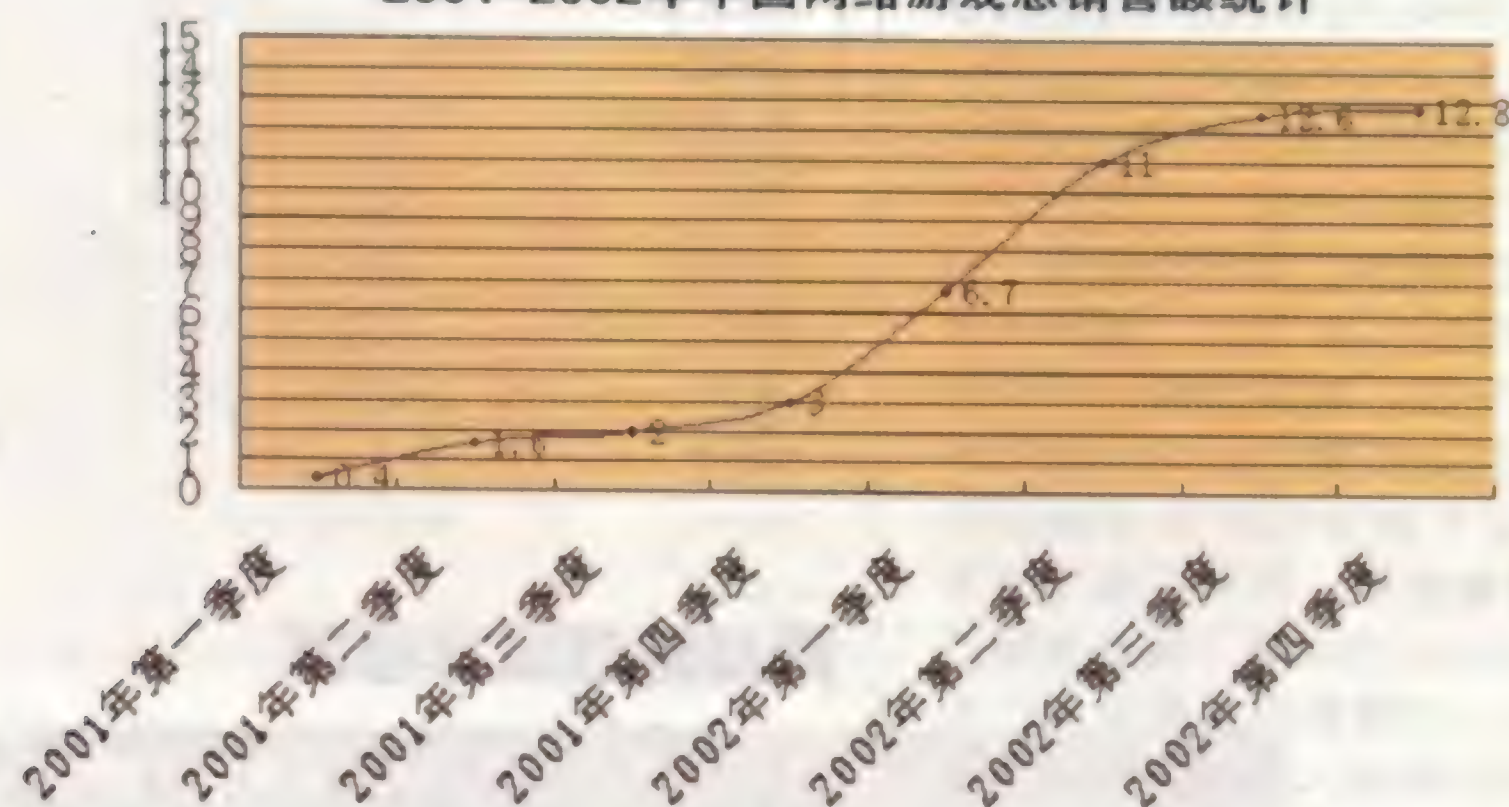 2001-2002年中国网络游戏总销售额统计
15
14
13
12
11
10
9
8
7
6
5
4
3
2
1
0
0.4
1.6
2
3
6.7
11
12.8
2001年第一季度
2001年第二季度
2001年第三季度
2001年第四季度
2002年第一季度
2002年第二季度
2002年第三季度
2002年第四季度